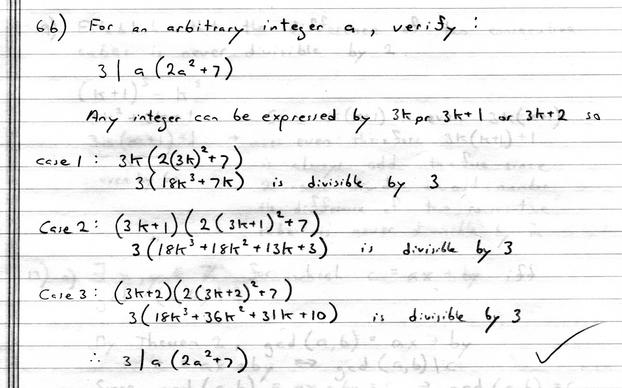 6b) For an arbitrary integer a, verify :
3 | a (2a²+7)
Any integer can be expressed by 3k or 3k+1 or 3k+2 so
case 1 : 3k(2(3k)²+7)
3(18k³+7k) is divisible by 3
Case 2 : (3k+1)(2(3k+1)²+7)
3(18k³+18k²+13k+3) is divisible by 3
Case 3 : (3k+2)(2(3k+2)²+7)
3(18k³+36k²+31k+10) is divisible by 3
∴ 3 | a (2a²+7)